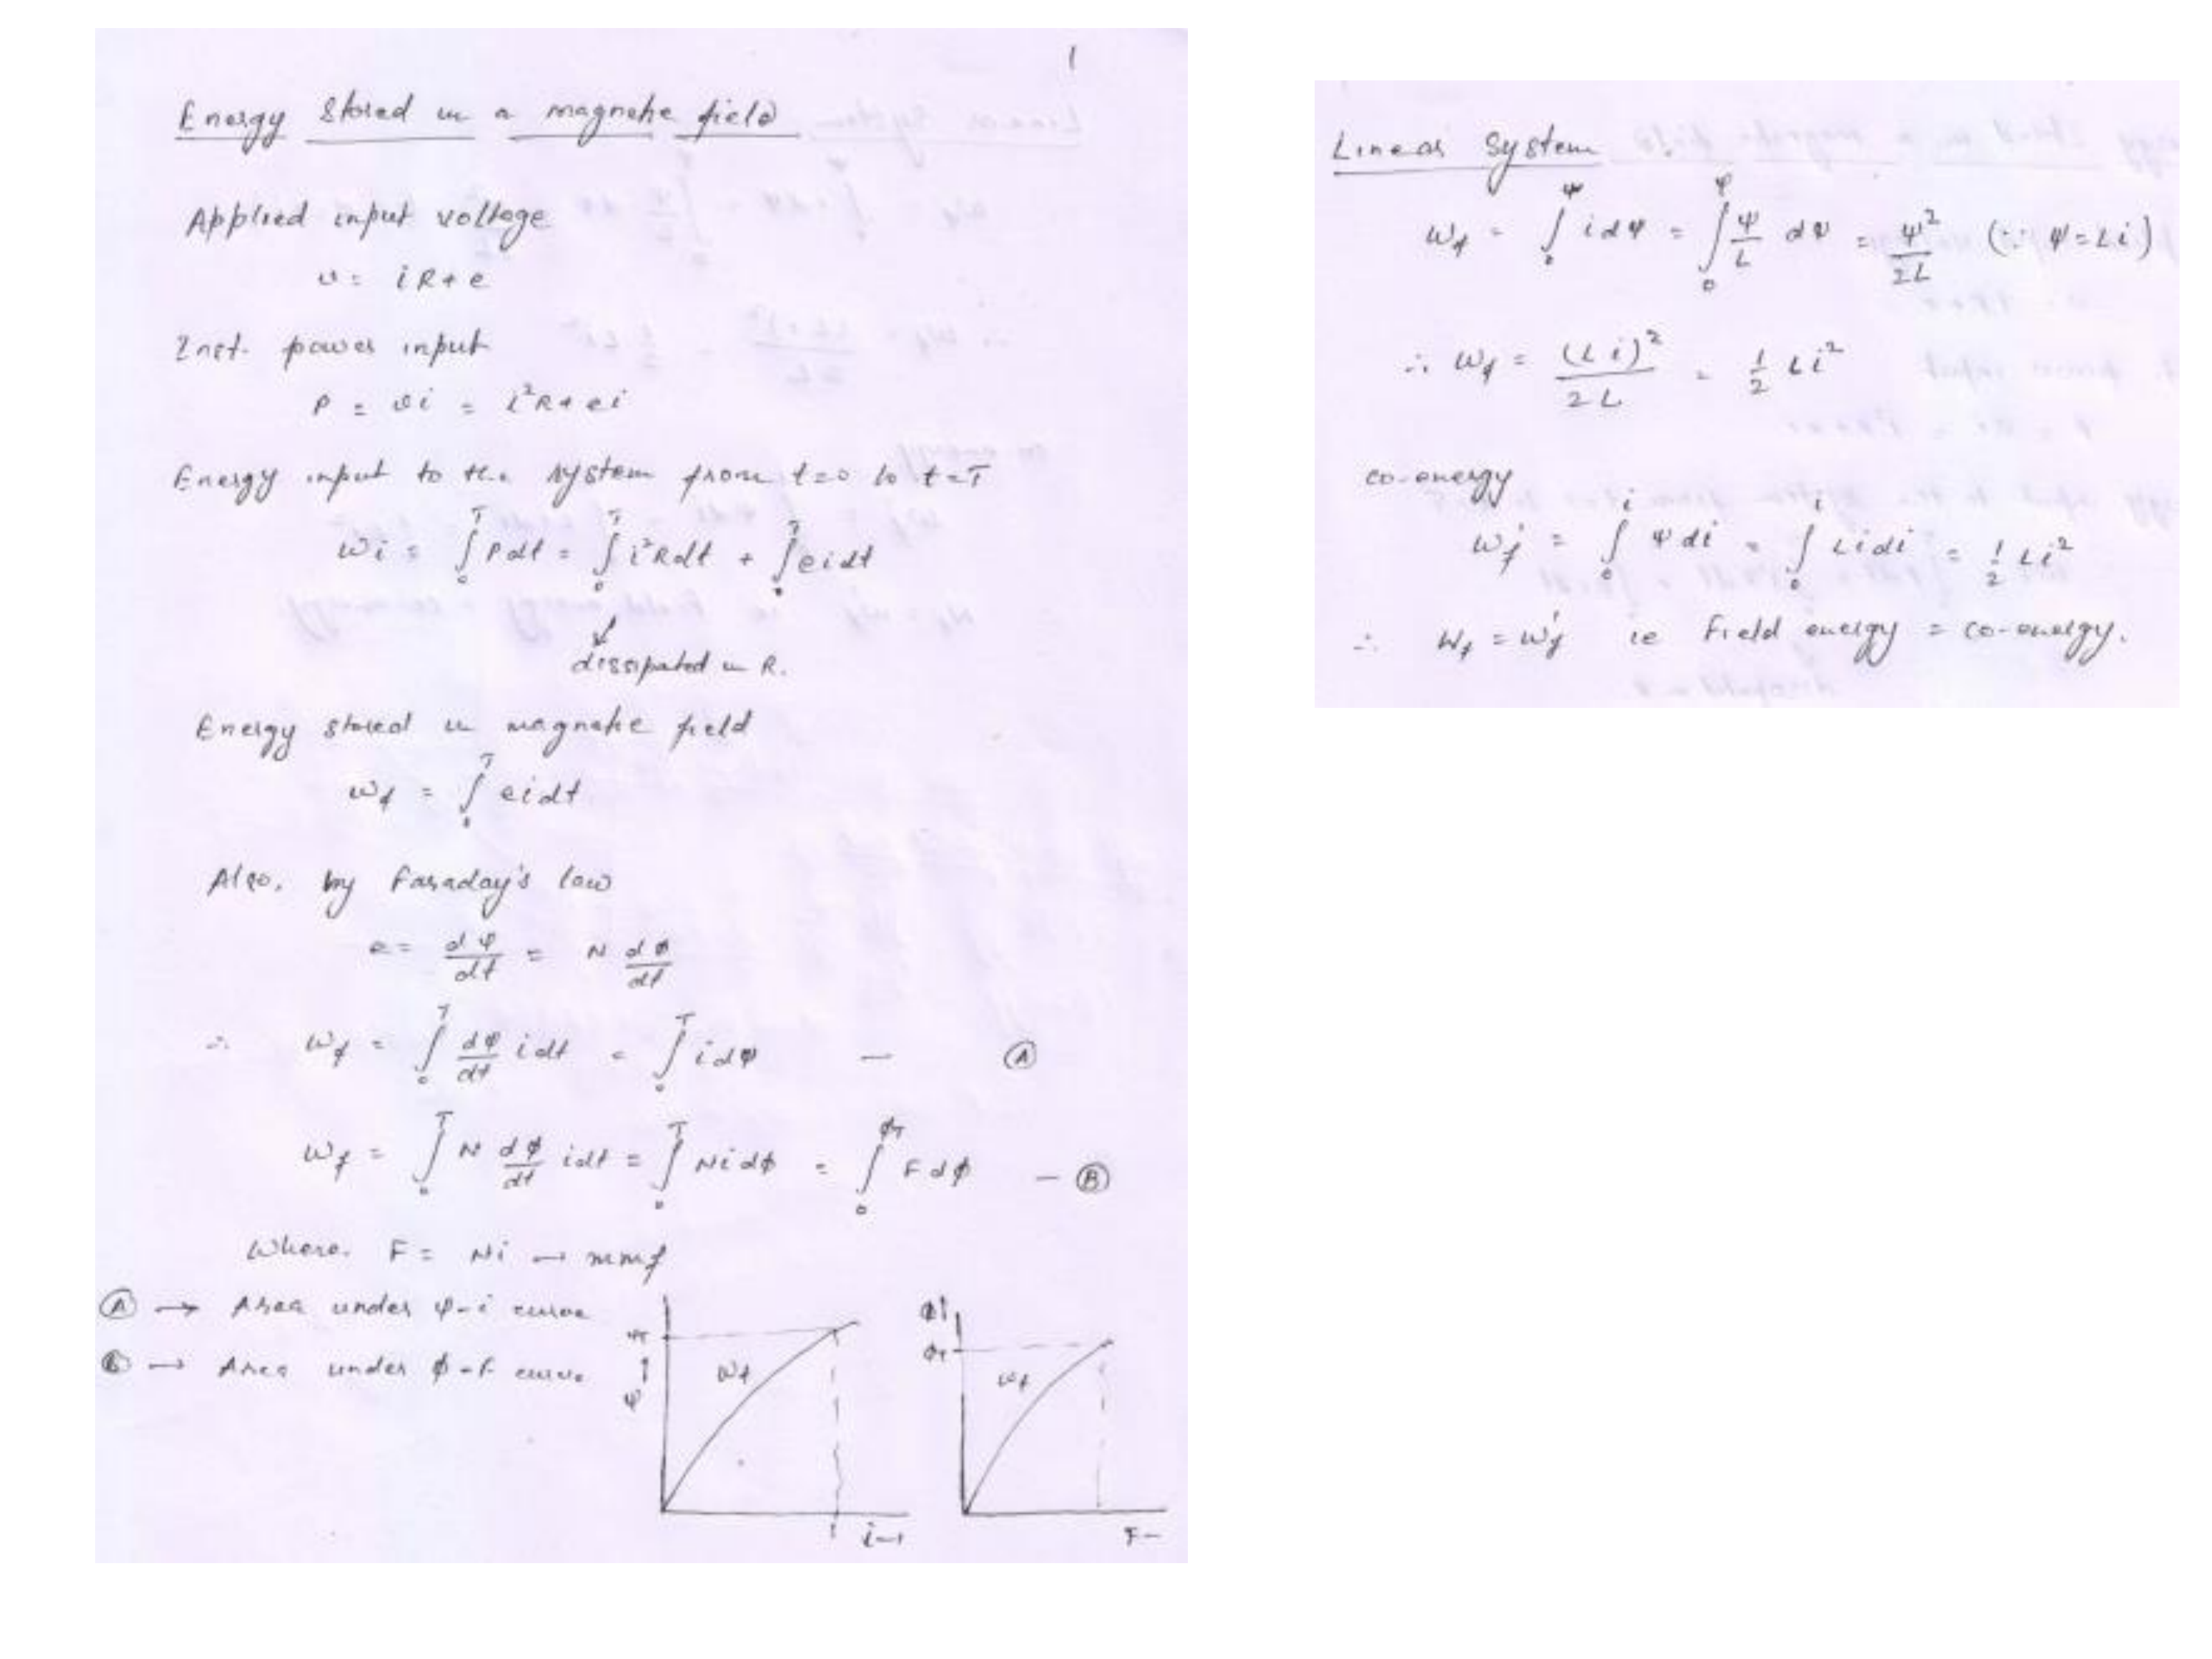 1
Energy stored in a magnetic field
Applied input voltage
v = iR + e
Inst. power input
P = vi = i²R + ei
Energy input to the system from t=0 to t=T
Wi = ∫₀ᵀ P dt = ∫₀ᵀ i²R dt + ∫₀ᵀ e i dt
dissipated in R.
Energy stored in magnetic field
Wf = ∫₀ᵀ e i dt
Also, by Faraday's law
e = dψ/dt = N dφ/dt
∴ Wf = ∫₀ᵀ dψ/dt i dt = ∫₀ᵀ i dψ — Ⓐ
Wf = ∫₀ᵀ N dφ/dt i dt = ∫₀ᵀ Ni dφ = ∫₀^φT F dφ — Ⓑ
Where. F = Ni → mmf
Ⓐ → Area under ψ-i curve
Ⓑ → Area under φ-F curve
ψT
↑
ψ
Wf
i→
φ↑
φT
Wf
F–
Linear System
Wf = ∫₀^ψ i dψ = ∫₀^ψ ψ/L dψ = ψ²/2L (∵ ψ = Li)
∴ Wf = (Li)²/2L = ½ Li²
co-energy
Wf' = ∫₀ⁱ ψ di = ∫₀ⁱ Li di = ½ Li²
∴ Wf = Wf' ie Field energy = co-energy.